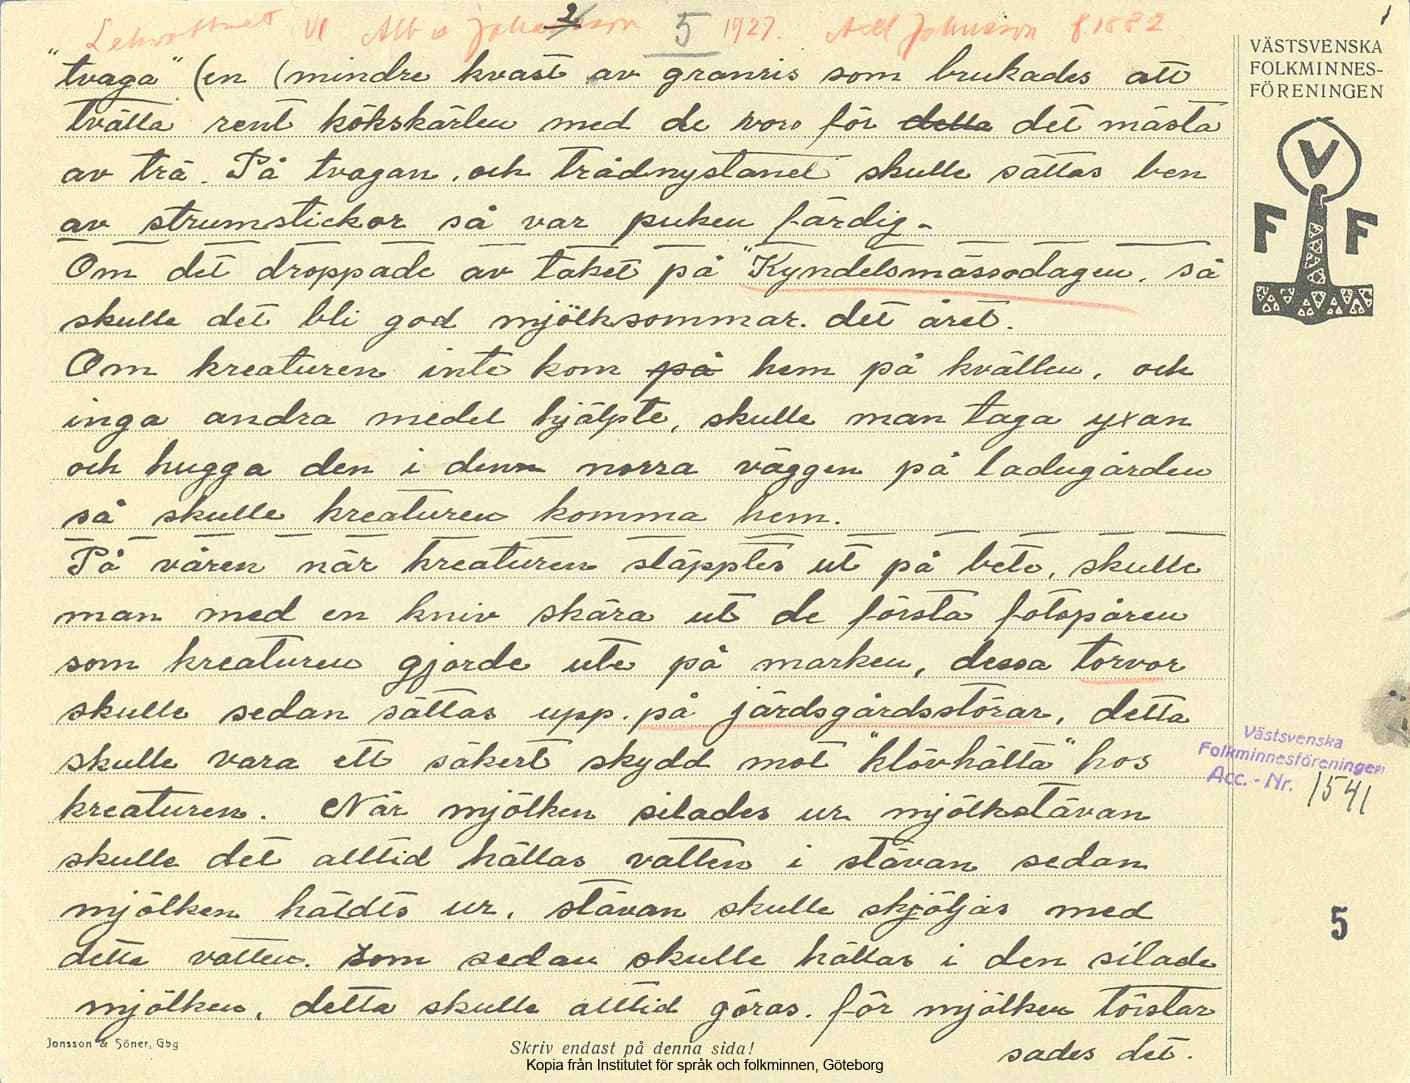 2
Lekvattnet Vl Alb a Johansson 5 1927. Axel Johnsson f. 1882
"tvaga" (en (mindre kvast av granris som brukades att
tvätta rent kökskärlen med de voro för detta det mästa
av trä. På tvagan, och trådnystanet skulle sättas ben
av strumstickor så var puken färdig.
Om det droppade av taket på "Kyndelsmässodagen, så
skulle det bli god mjölksommar. det året.
Om kreaturen inte kom på hem på kvällen, och
inga andra medel hjälpte, skulle man taga yxan
och hugga den i denn norra väggen på ladugården
så skulle kreaturen komma hem.
På våren när kreaturen släpptes ut på bete, skulle
man med en kniv skära ut de första fotspåren
som kreaturen gjorde ute på marken, dessa torvor
skulle sedan sättas upp. på järdsgårdsstörar, detta
skulle vara ett säkert skydd mot "klövhälta" hos
kreaturen. När mjölken silades ur mjölkstävan
skulle det alltid hällas vatten i stävan sedan
mjölken häldts ur, stävan skulle skjöljas med
detta vatten. som sedan skulle hällas i den silade
mjölken, detta skulle alltid göras. för mjölken törstar
sades det.
VÄSTSVENSKA
FOLKMINNES-
FÖRENINGEN
V
F F
Västsvenska
Folkminnesföreningen
Acc. - Nr. 1541
5
Jonsson & Söner, Gbg
Skriv endast på denna sida!
Kopia från Institutet för språk och folkminnen, Göteborg